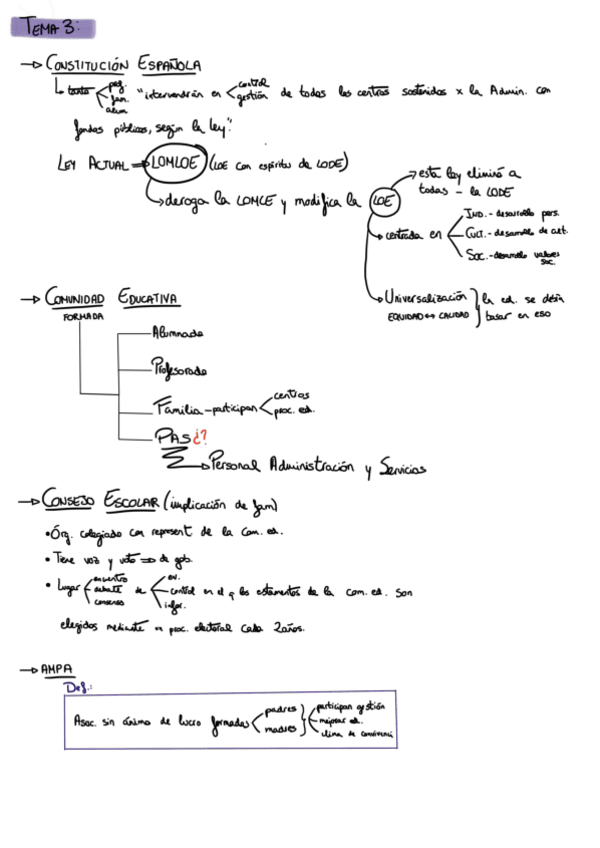 TEMA 3:
→ CONSTITUCIÓN ESPAÑOLA
↳ tanto < prof. fam. alum. "intervendrán en < control gestión de todos los centros sostenidos x la Admin. con
fondos públicos, según la ley".
LEY ACTUAL → LOMLOE (LOE con espíritu de LODE)
↳ deroga la LOMCE y modifica la LOE
→ esta ley eliminó a
todas - la LODE
→ centrada en
IND. - desarrollo pers.
CULT. - desarrollo de
SOC. - desarrollo valores soc.
→ Universalización } la ed. se debía
EQUIDAD ↔ CALIDAD } basar en eso
→ COMUNIDAD EDUCATIVA
FORMADA
Alumnado
Profesorado
Familia - participan < centros
proc. ed.
PAS ¿?
→ Personal Administración y Servicios
→ CONSEJO ESCOLAR (implicación de fam)
• Órg. colegiado con represent de la com. ed.
• Tiene voz y voto → de gob.
• Lugar { encuentro debate consenso de < ev. control infor. en el q los estamentos de la com. ed. son
elegidos mediante un proc. electoral cada 2 años.
→ AMPA
Def.:
Asoc. sin ánimo de lucro formadas < padres madres } participan gestión
mejorar ed.
clima de convivenci